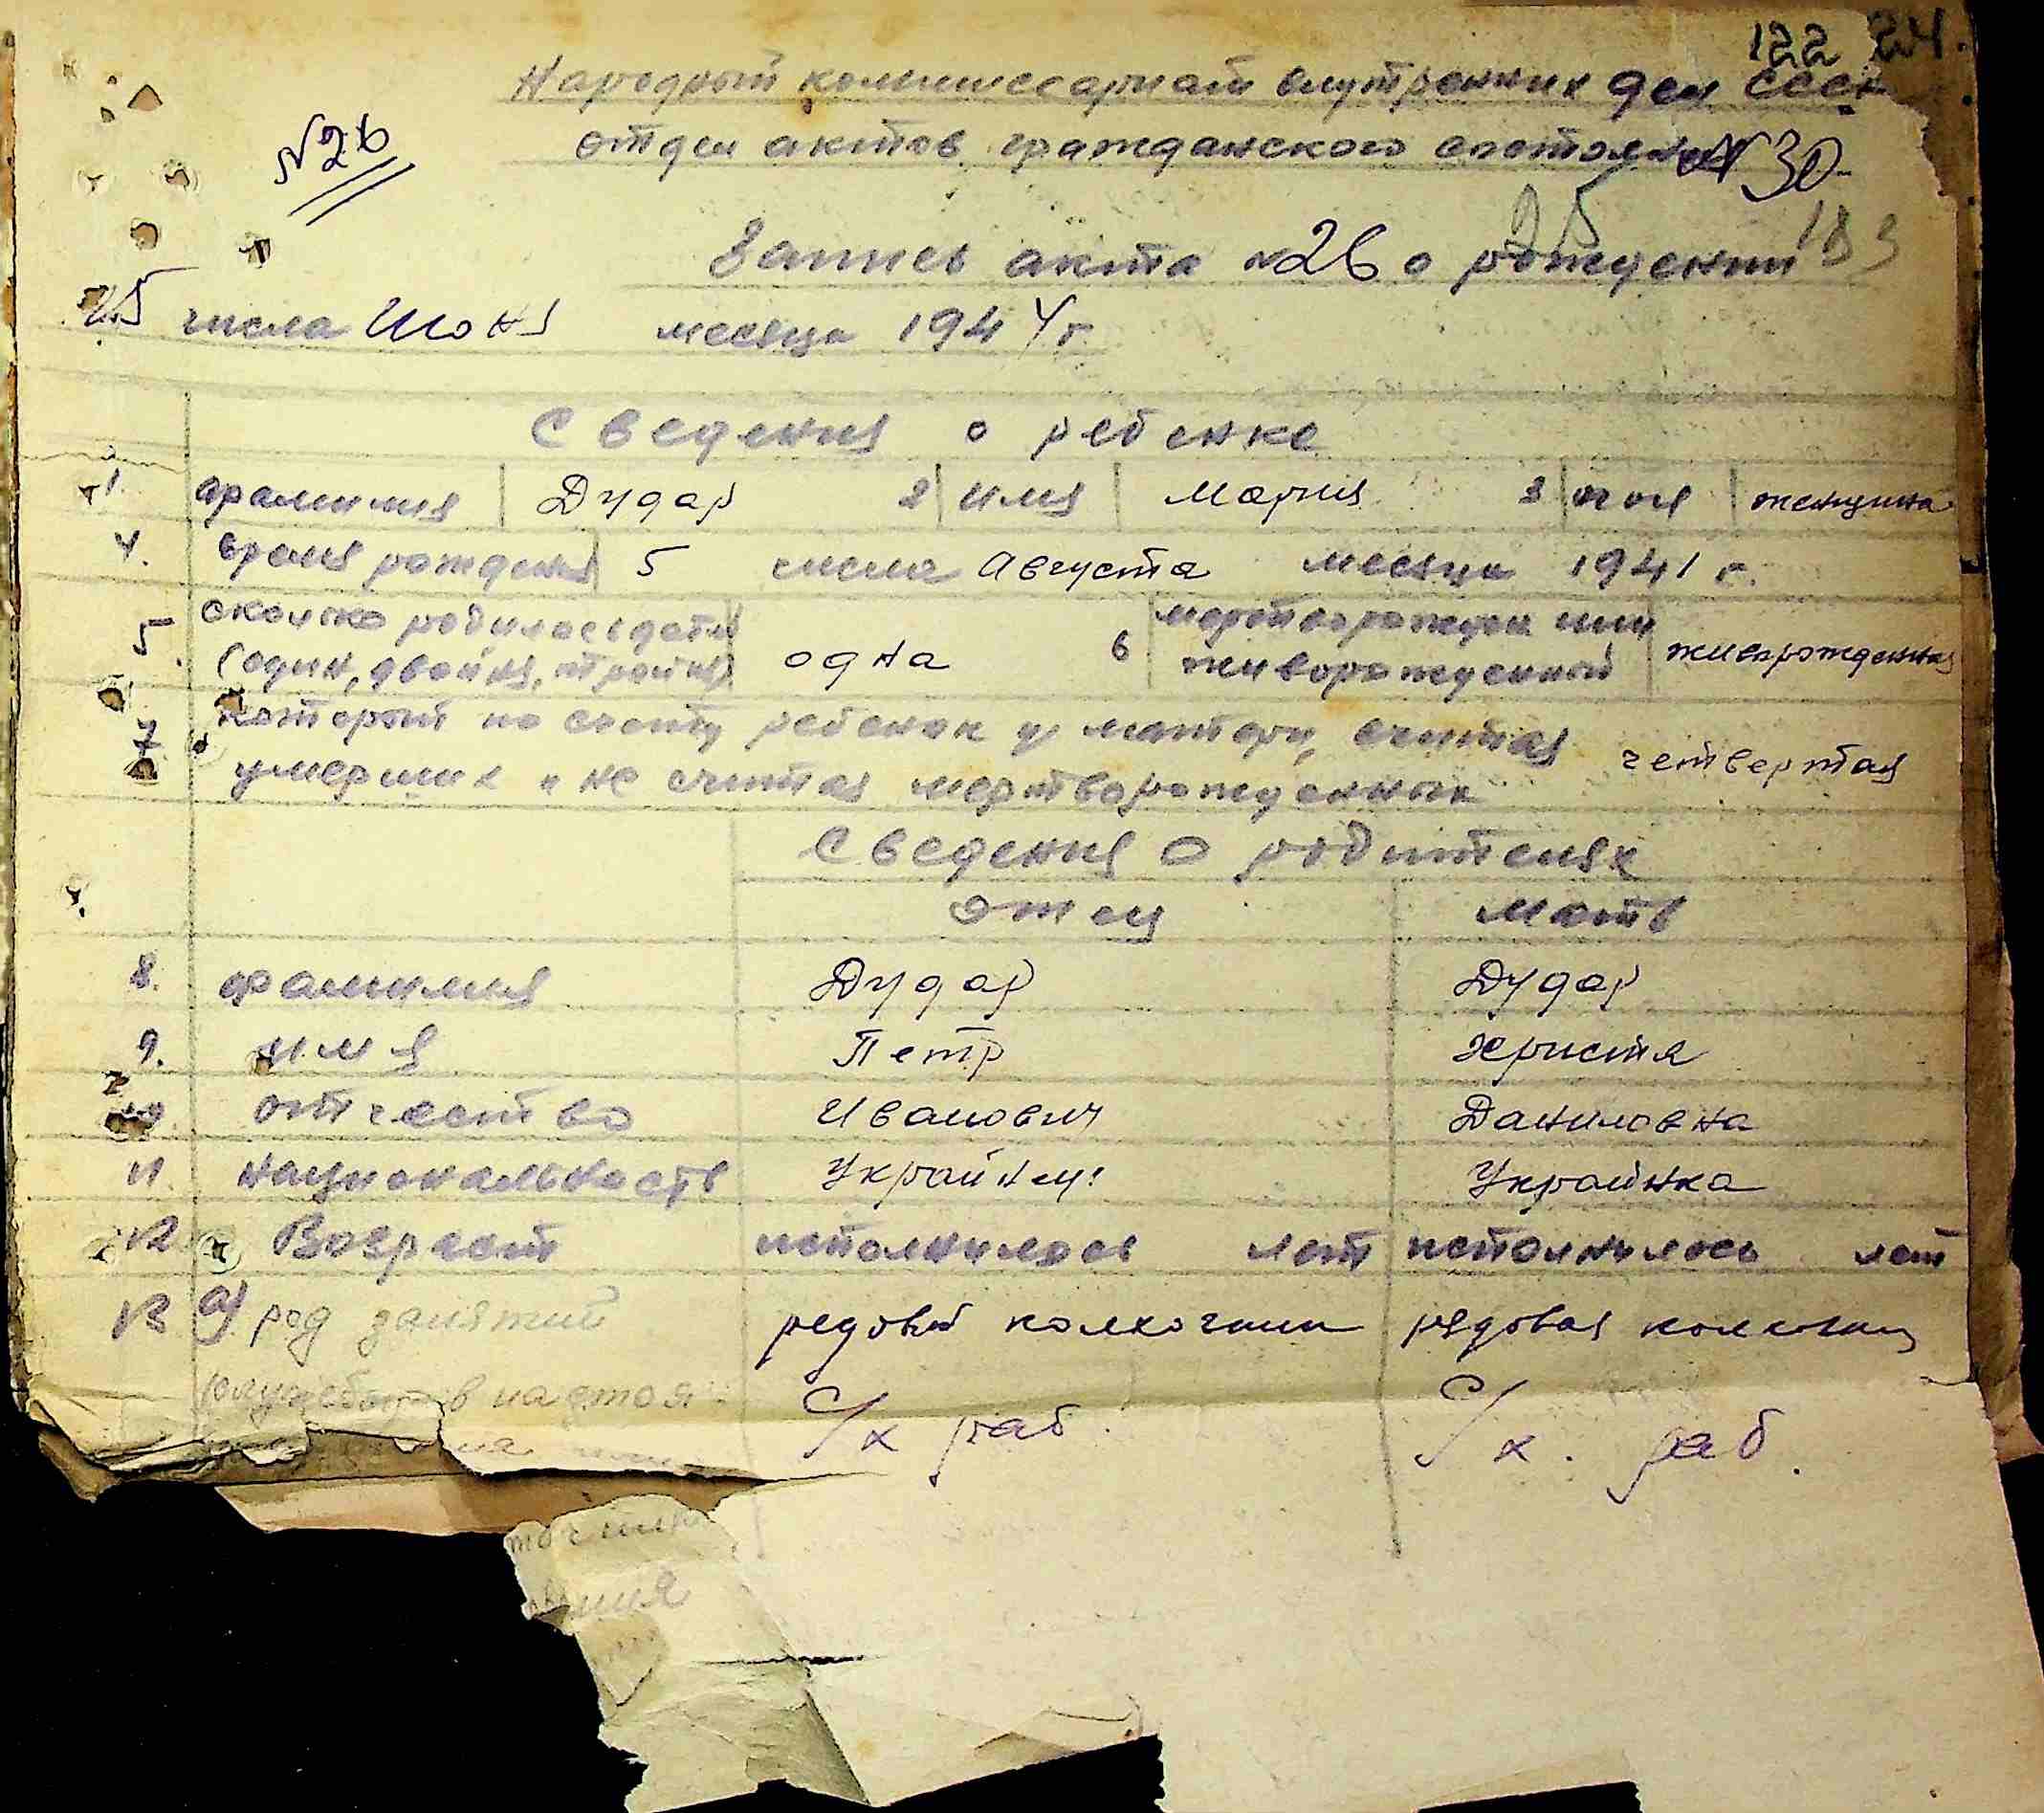 122 24.
Народный коммиссариат внутренних дел СССР
№26
отдел актов гражданского состояния №30
25 183
Запись акта №26 о рождении
25 числа Июня месяца 1944 г.
Сведения о ребенке
1. фамилия Дудар 2 имя Мария 3 пол женщина
4. время рождения 5 числа Августа месяца 1941 г.
5. сколько родилось детей (один, двойня, тройня) одна 6 мертворожден или живорожденный живорожденная
7 который по счету ребенок у матери, считая
умерших и не считая мертворожденных четвертая
Сведения о родителях
отец мать
8. фамилия Дудар Дудар
9. имя Петр Христя
10. отчество Иванович Даниловна
11. национальность Украйнец Украйнка
12 Возраст исполнилось лет исполнилось лет
13 а) род занятий редовый колхозник рядовая колхозниц
в настоя
С/х раб. С/х. раб.